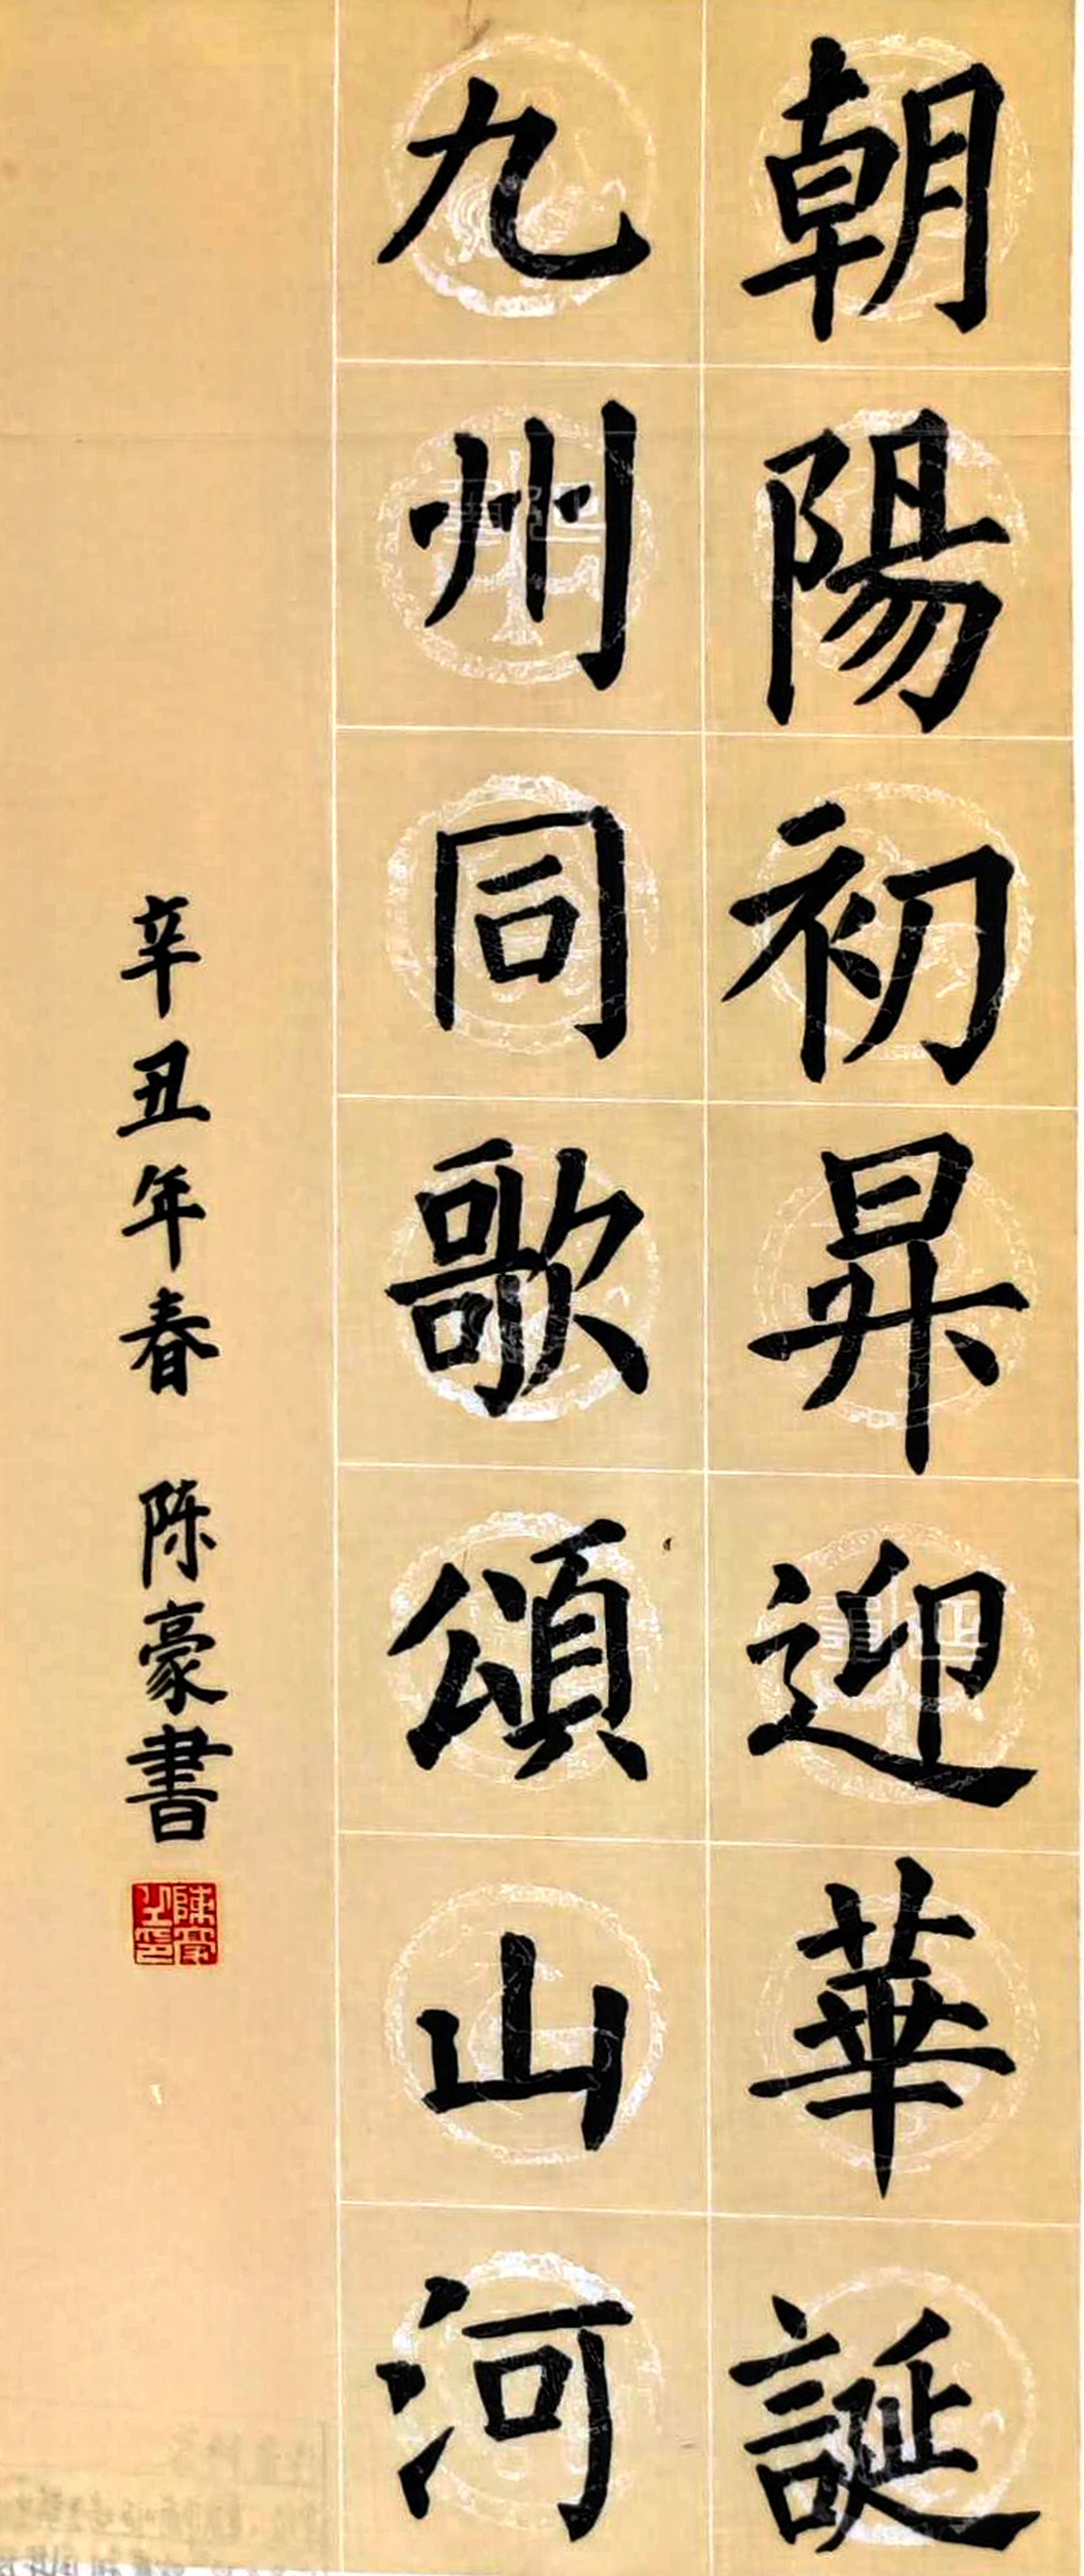 朝陽初昇迎華誕
九州同歌頌山河
辛丑年春 陈豪書
陳豪之印